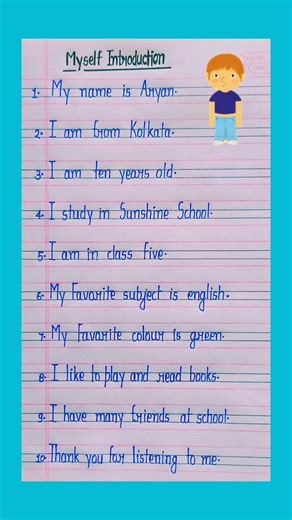 Myself Introduction
1. My name is Aryan.
2. I am from Kolkata.
3. I am ten years old.
4. I study in Sunshine School.
5. I am in class five.
6. My Favorite subject is english.
7. My Favorite colour is green.
8. I like to play and read books.
9. I have many friends at school.
10. Thank you for listening to me.